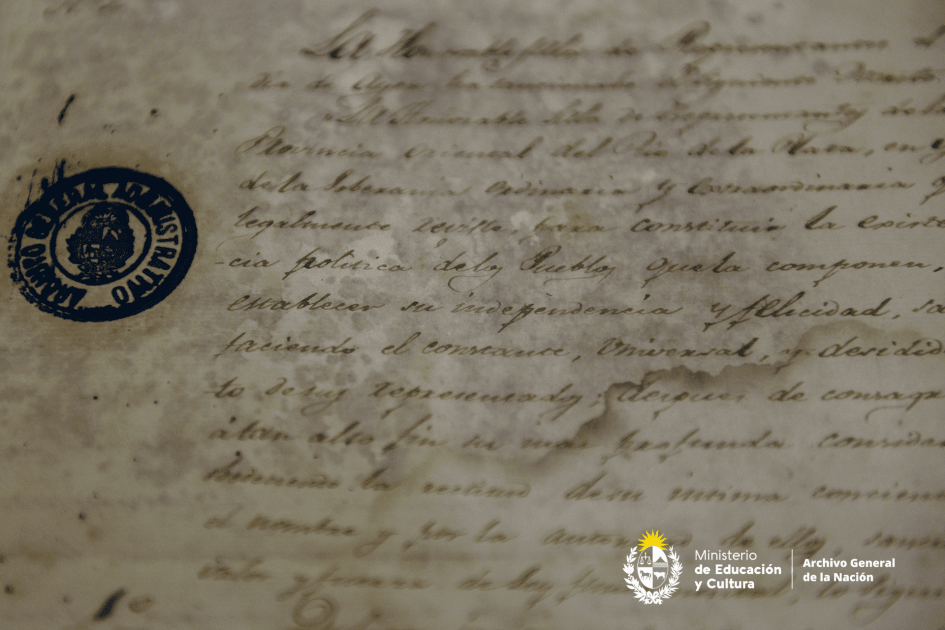 La Honorable Sala de Representantes
La Honorable Sala de Representantes de la
Provincia Oriental del Rio de la Plata, en
de la Soberania ordinaria y extraordinaria q
legalmente reviste, para constituir la existe
-cia politica delos Pueblos que la componen,
establecer su independencia y felicidad, sa
faciendo el constante, Universal, y decidid
-to desus representados; despues de consagr
átan alto fin su mas profunda considera
la rectitud desu intima concienc
el nombre y por la autoridad de ellos
de Ley
ARCHIVO GRAL. ADMINISTRATIVO
Ministerio
de Educación
y Cultura
Archivo General
de la Nación